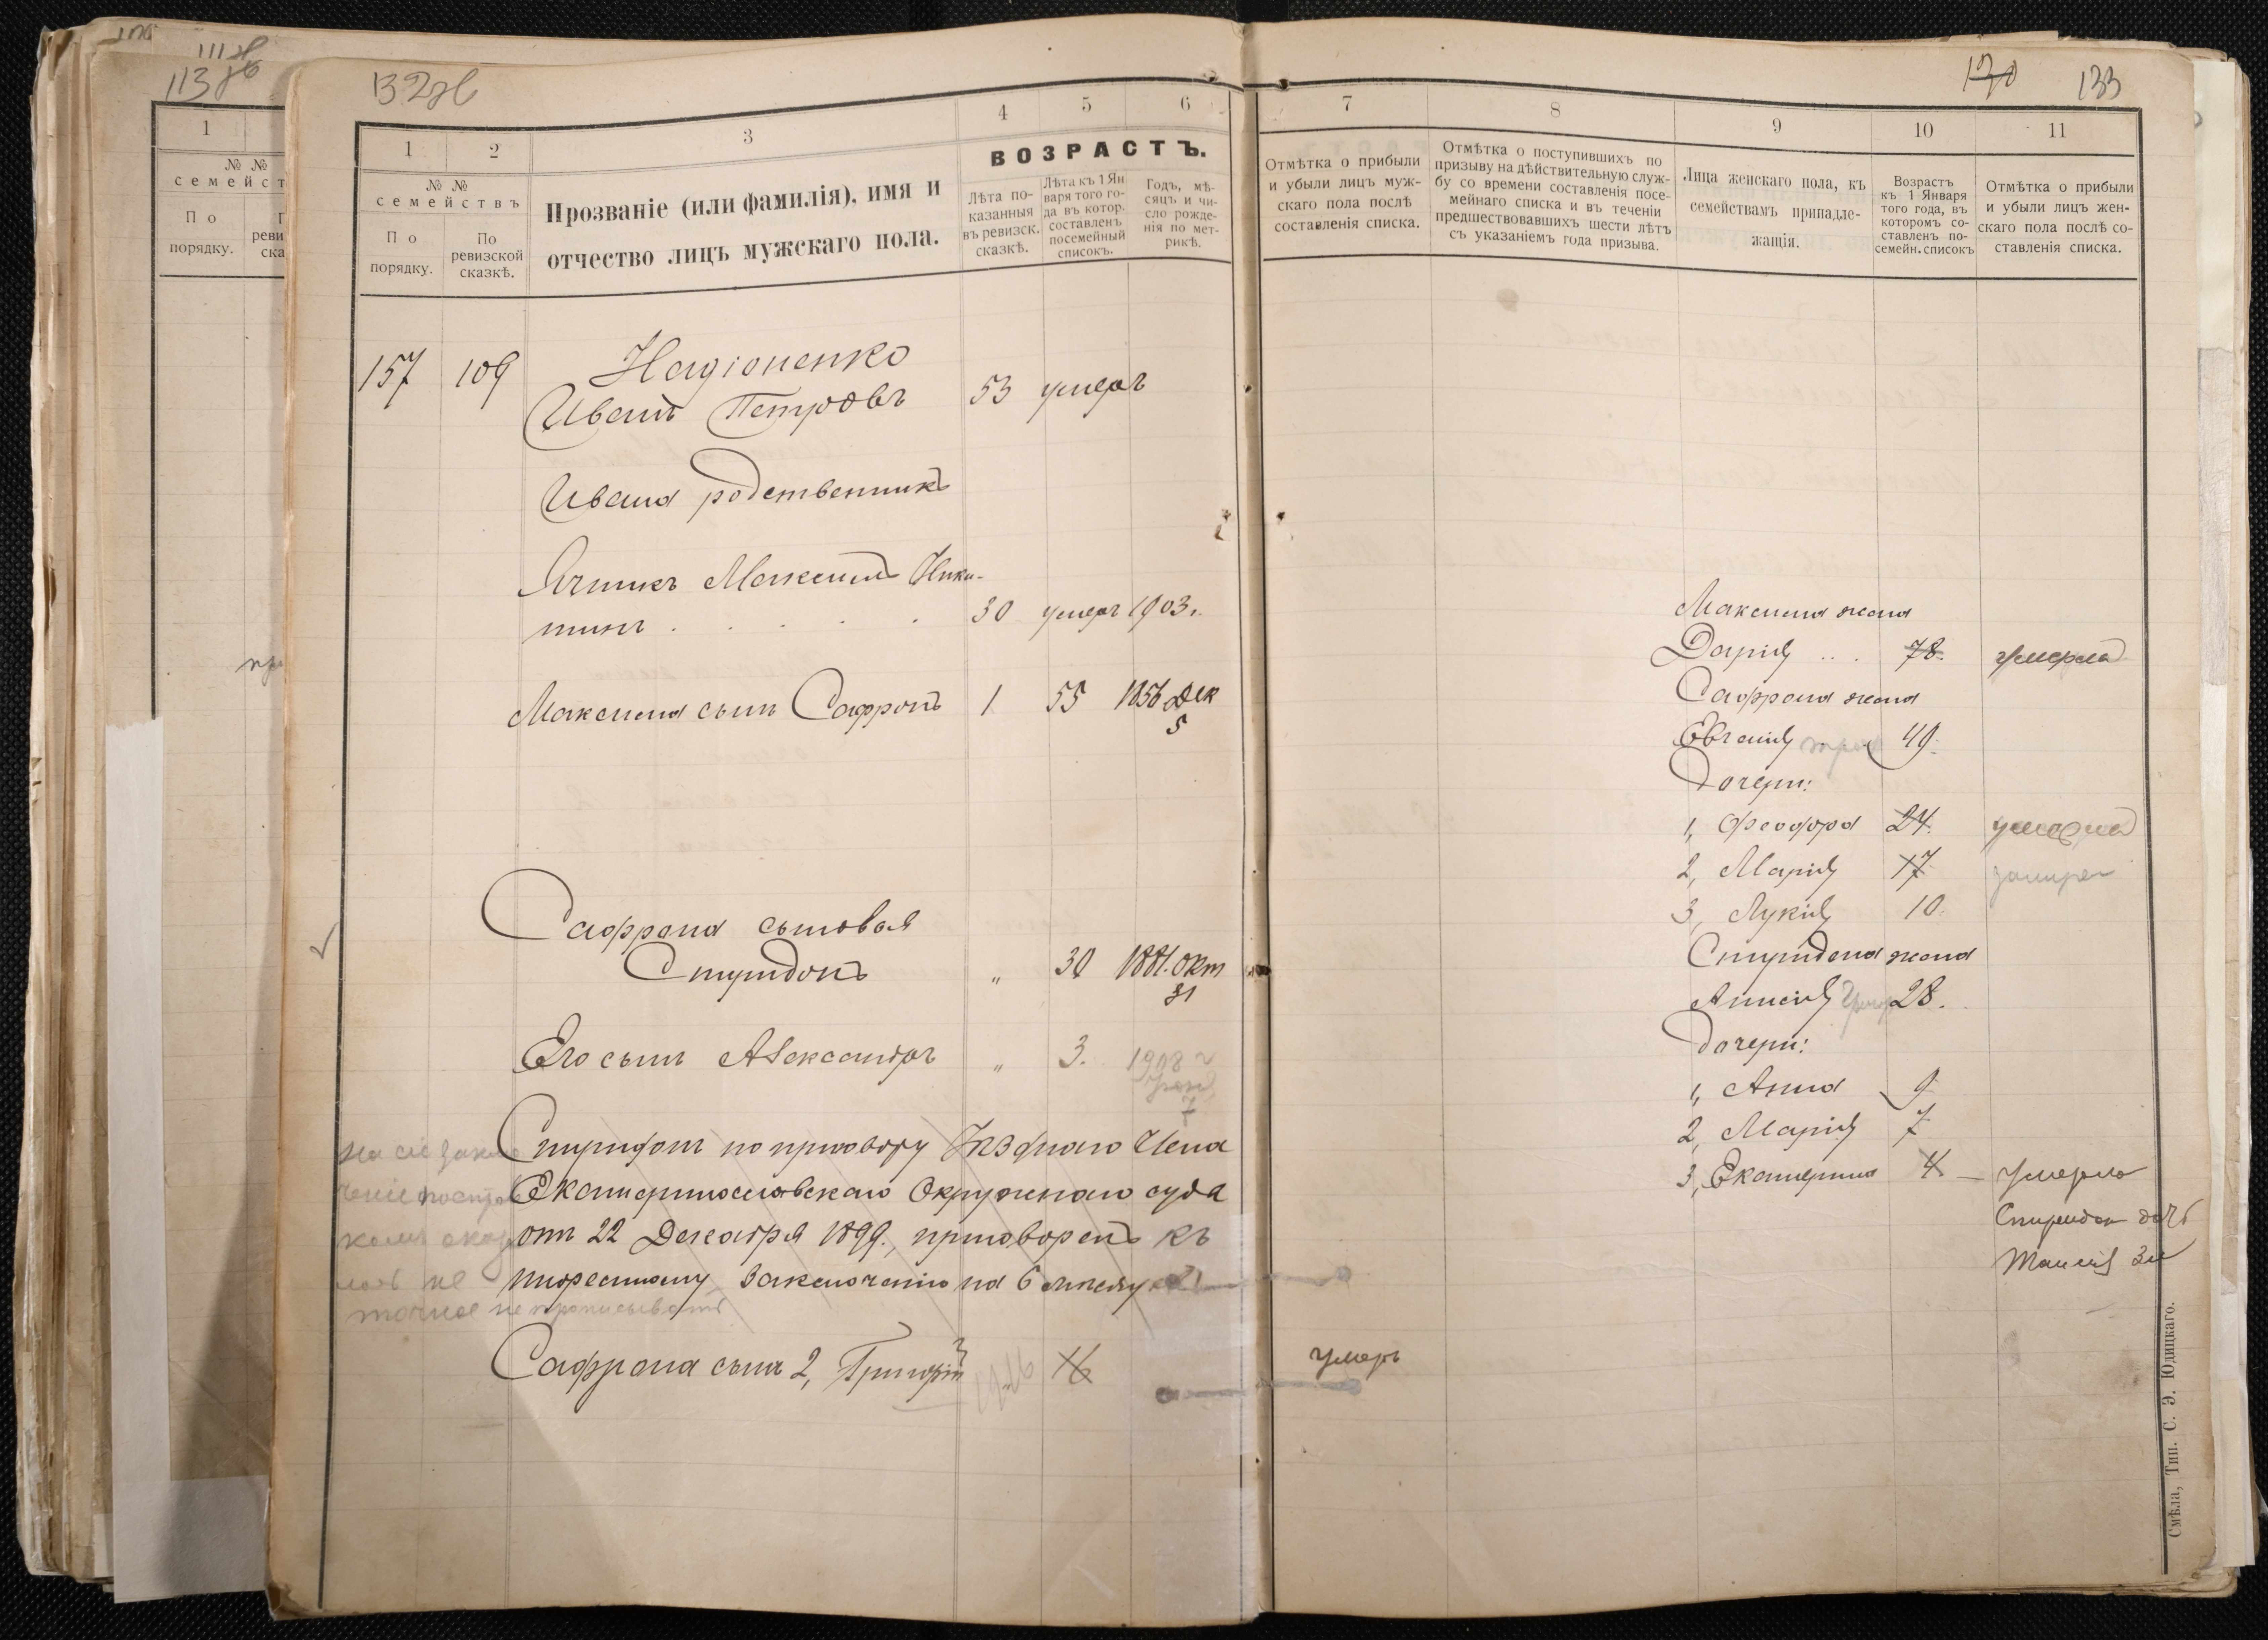 113 об
1
№ №
семейст
По
порядку.
132 об
1
2
3
4
5
6
№ №
семействъ
По
порядку.
По
ревизской
сказкѣ.
Прозваніе (или фамилія), имя и
отчество лицъ мужскаго пола.
ВОЗРАСТЪ.
Лѣта по-
казанныя
въ ревизск.
сказкѣ.
Лѣта къ 1 Ян
варя того го-
да въ котор.
составленъ
посемейный
списокъ.
Годъ, мѣ-
сяцъ и чи-
сло рожде-
нія по мет-
рикѣ.
157 109
Иванъ Петровъ 53 умеръ
Ивана родственникъ
Максимъ Ники-
тинъ . . . . . 30 умеръ 1903 г.
Максима сынъ Сафронъ 1 55 1856 Дек
5
Сафрона сыновья
Спиридонъ " 30 1881. Окт
31
Его сынъ Александръ " 3. 1908 г
7
Спиридонъ по приговору Уѣзднаго Члена
Екатеринославскаго Окружнаго суда
отъ 22 Декабря 1899., приговоренъ къ
тюремному заключенію на 6 мѣсяц
точное не прописывать
Сафрона сынъ 2, Григорій 16
130 133
7
8
9
10
11
Отмѣтка о прибыли
и убыли лицъ муж-
скаго пола послѣ
составленія списка.
Отмѣтка о поступившихъ по
призыву на дѣйствительную служ-
бу со времени составленія посе-
мейнаго списка и въ теченіи
предшествовавшихъ шести лѣтъ
съ указаніемъ года призыва.
Лица женскаго пола, къ
семействамъ принадле-
жащія.
Возрастъ
къ 1 Января
того года, въ
которомъ со-
ставленъ по-
семейн. списокъ
Отмѣтка о прибыли
и убыли лицъ жен-
скаго пола послѣ со-
ставленія списка.
Максима жена
Дарія . . . 78. умерла
Сафрона жена
Евгенія 49.
Дочери:
1, Феодора 24. умерла
2, Марія 17
3, Лукія 10.
Спиридона жена
Анисія 28.
Дочери:
1, Анна 9
2, Марія 7
3, Екатерина 4 — умерла
Спиридон дочь
умеръ
Смѣла, Тип. С. Э. Юдицкаго.